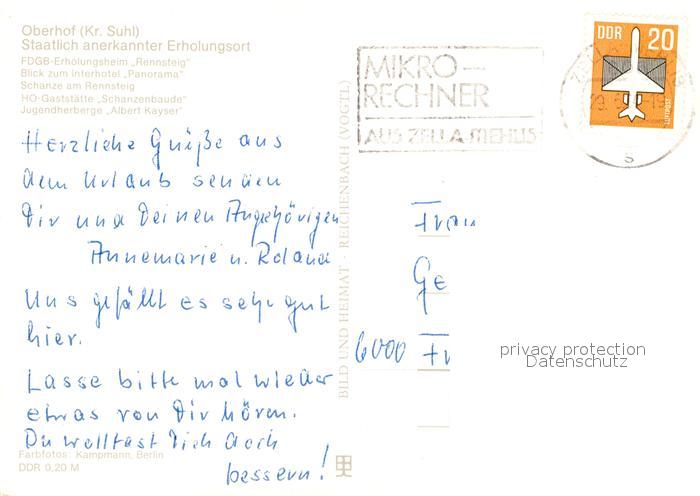 Oberhof (Kr. Suhl)
Staatlich anerkannter Erholungsort
FDGB-Erholungsheim „Rennsteig"
Blick zum Interhotel „Panorama"
Schanze am Rennsteig
HO-Gaststätte „Schanzenbaude"
Jugendherberge „Albert Kayser"
Herzliche Grüße aus
dem Urlaub senden
Dir und Deinen Angehörigen
Annemarie u. Roland
Uns gefällt es sehr gut
hier.
Lasse bitte mal wieder
etwas von Dir hören.
Du wolltest Dich doch
bessern!
Farbfotos: Kampmann, Berlin
DDR 0,20 M
BILD UND HEIMAT · REICHENBACH (VOGTL)
MIKRO-
RECHNER
AUS ZELLA-MEHLIS
DDR 20
Luftpost
s
Frau
Ge
6000 Fr
privacy protection
Datenschutz